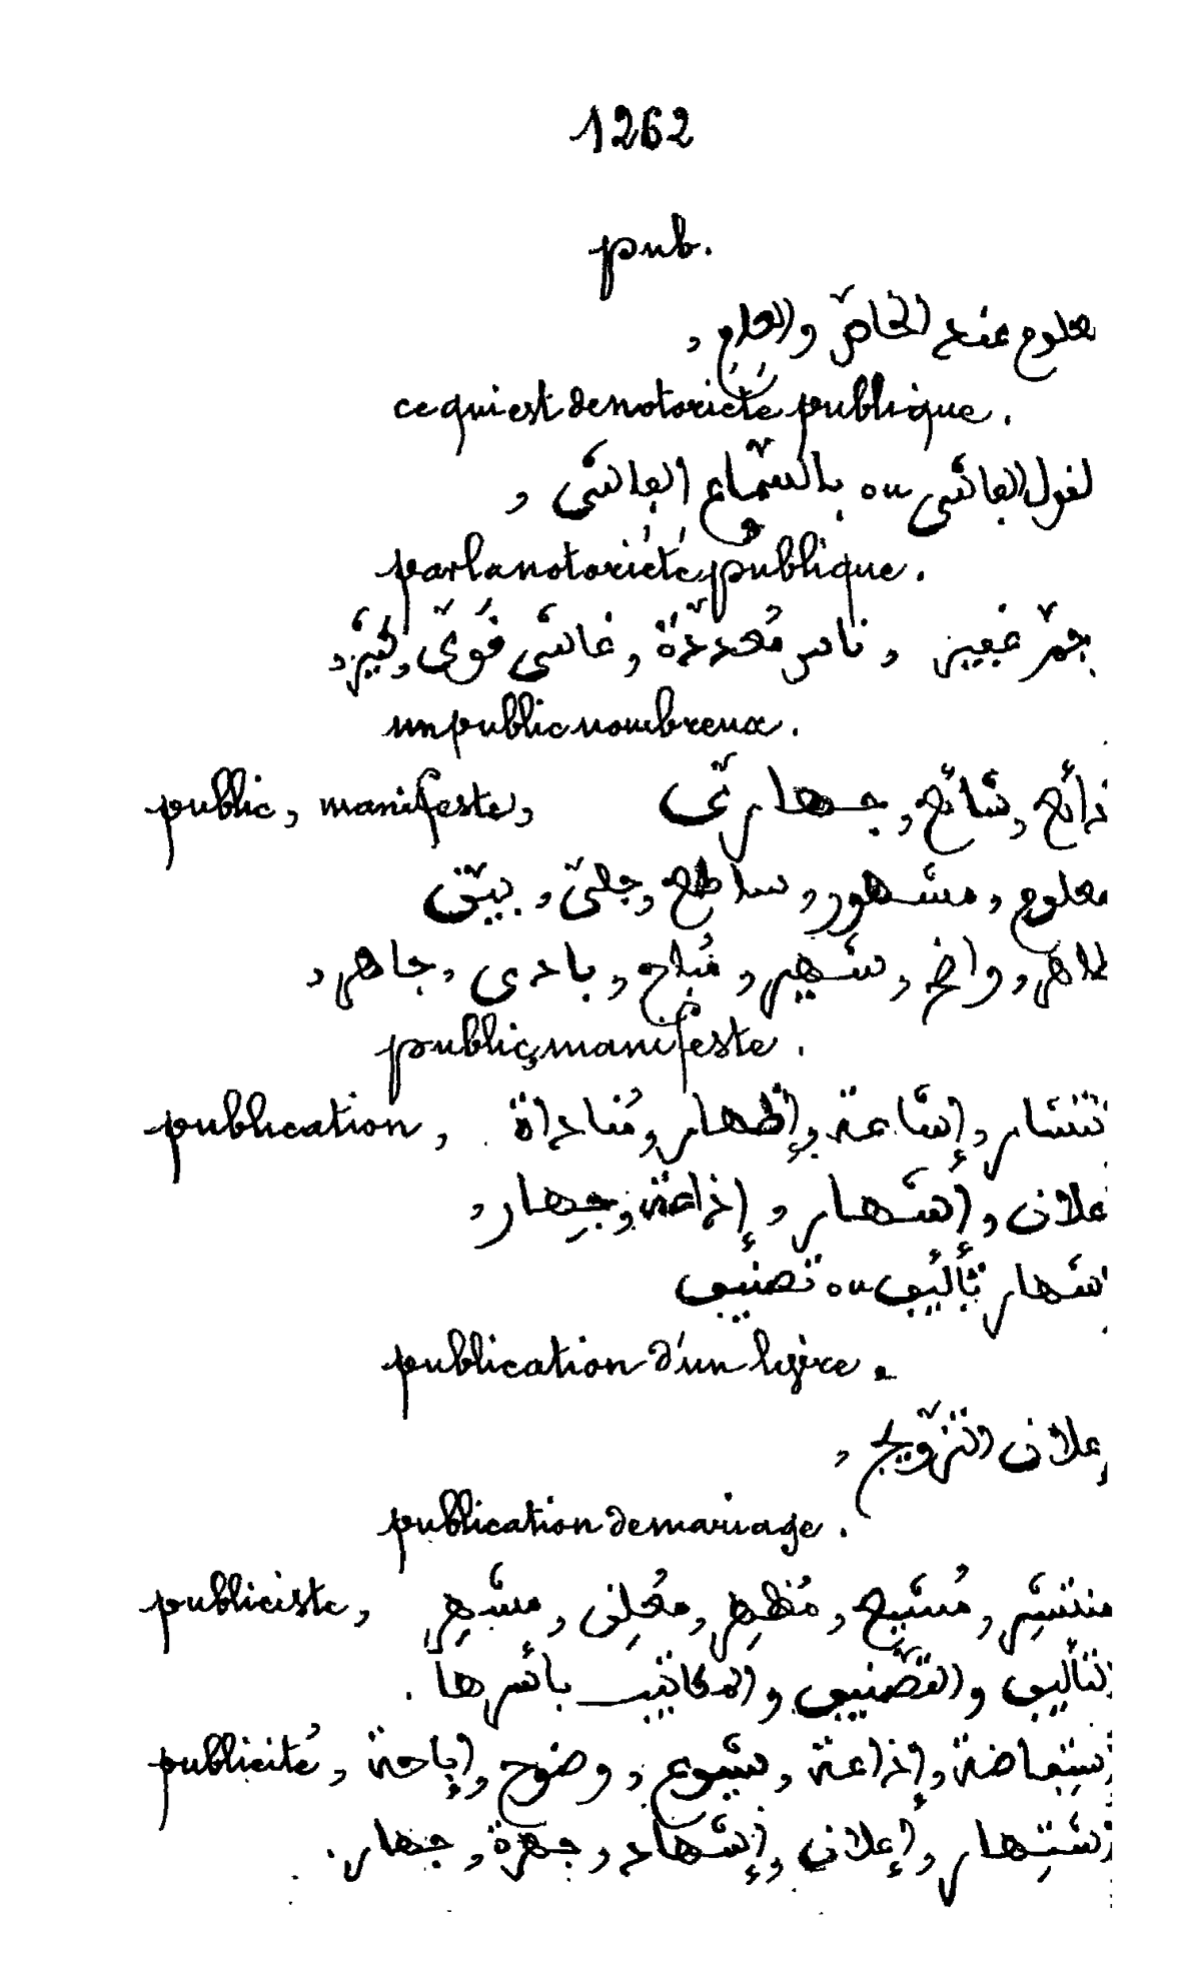 1262
pub.
معلوم عند الخاصّ والعامِّ ,
ce qui est de notoriété publique.
لفول الفاشى ou بالسّماع الفاشى ,
par la notoriété publique.
جمّ غفير , ناس مُعددّة , غاشى فَوىّ , كثير ,
un public nombreux.
public, manifeste, ذائع , شائع , جهارىّ
معلوم , مشهور , ساطع , جلىّ , بيّن
ظاهر , واضح , شهير , مُباح , بادى , جاهر ,
public, manifeste.
publication, تنشار , إشاعة , إظهار , مُناداة
علان , إشهار , إذاعة , جِهار ,
شهار تأليف ou تصنيف
publication d'un livre.
إعلان التزّويج ,
publication de mariage.
publiciste, منتشِر , مُشيع , مُظهِر , مُعلِن , مشهِر
التأليف والتّصنيف والمكاتيب بأسرها .
publicité, إستفاضة , إذاعة , شيوع , وضوح , إباحة ,
إشتهار , إعلان , إشهاد , جهرة , جهار .